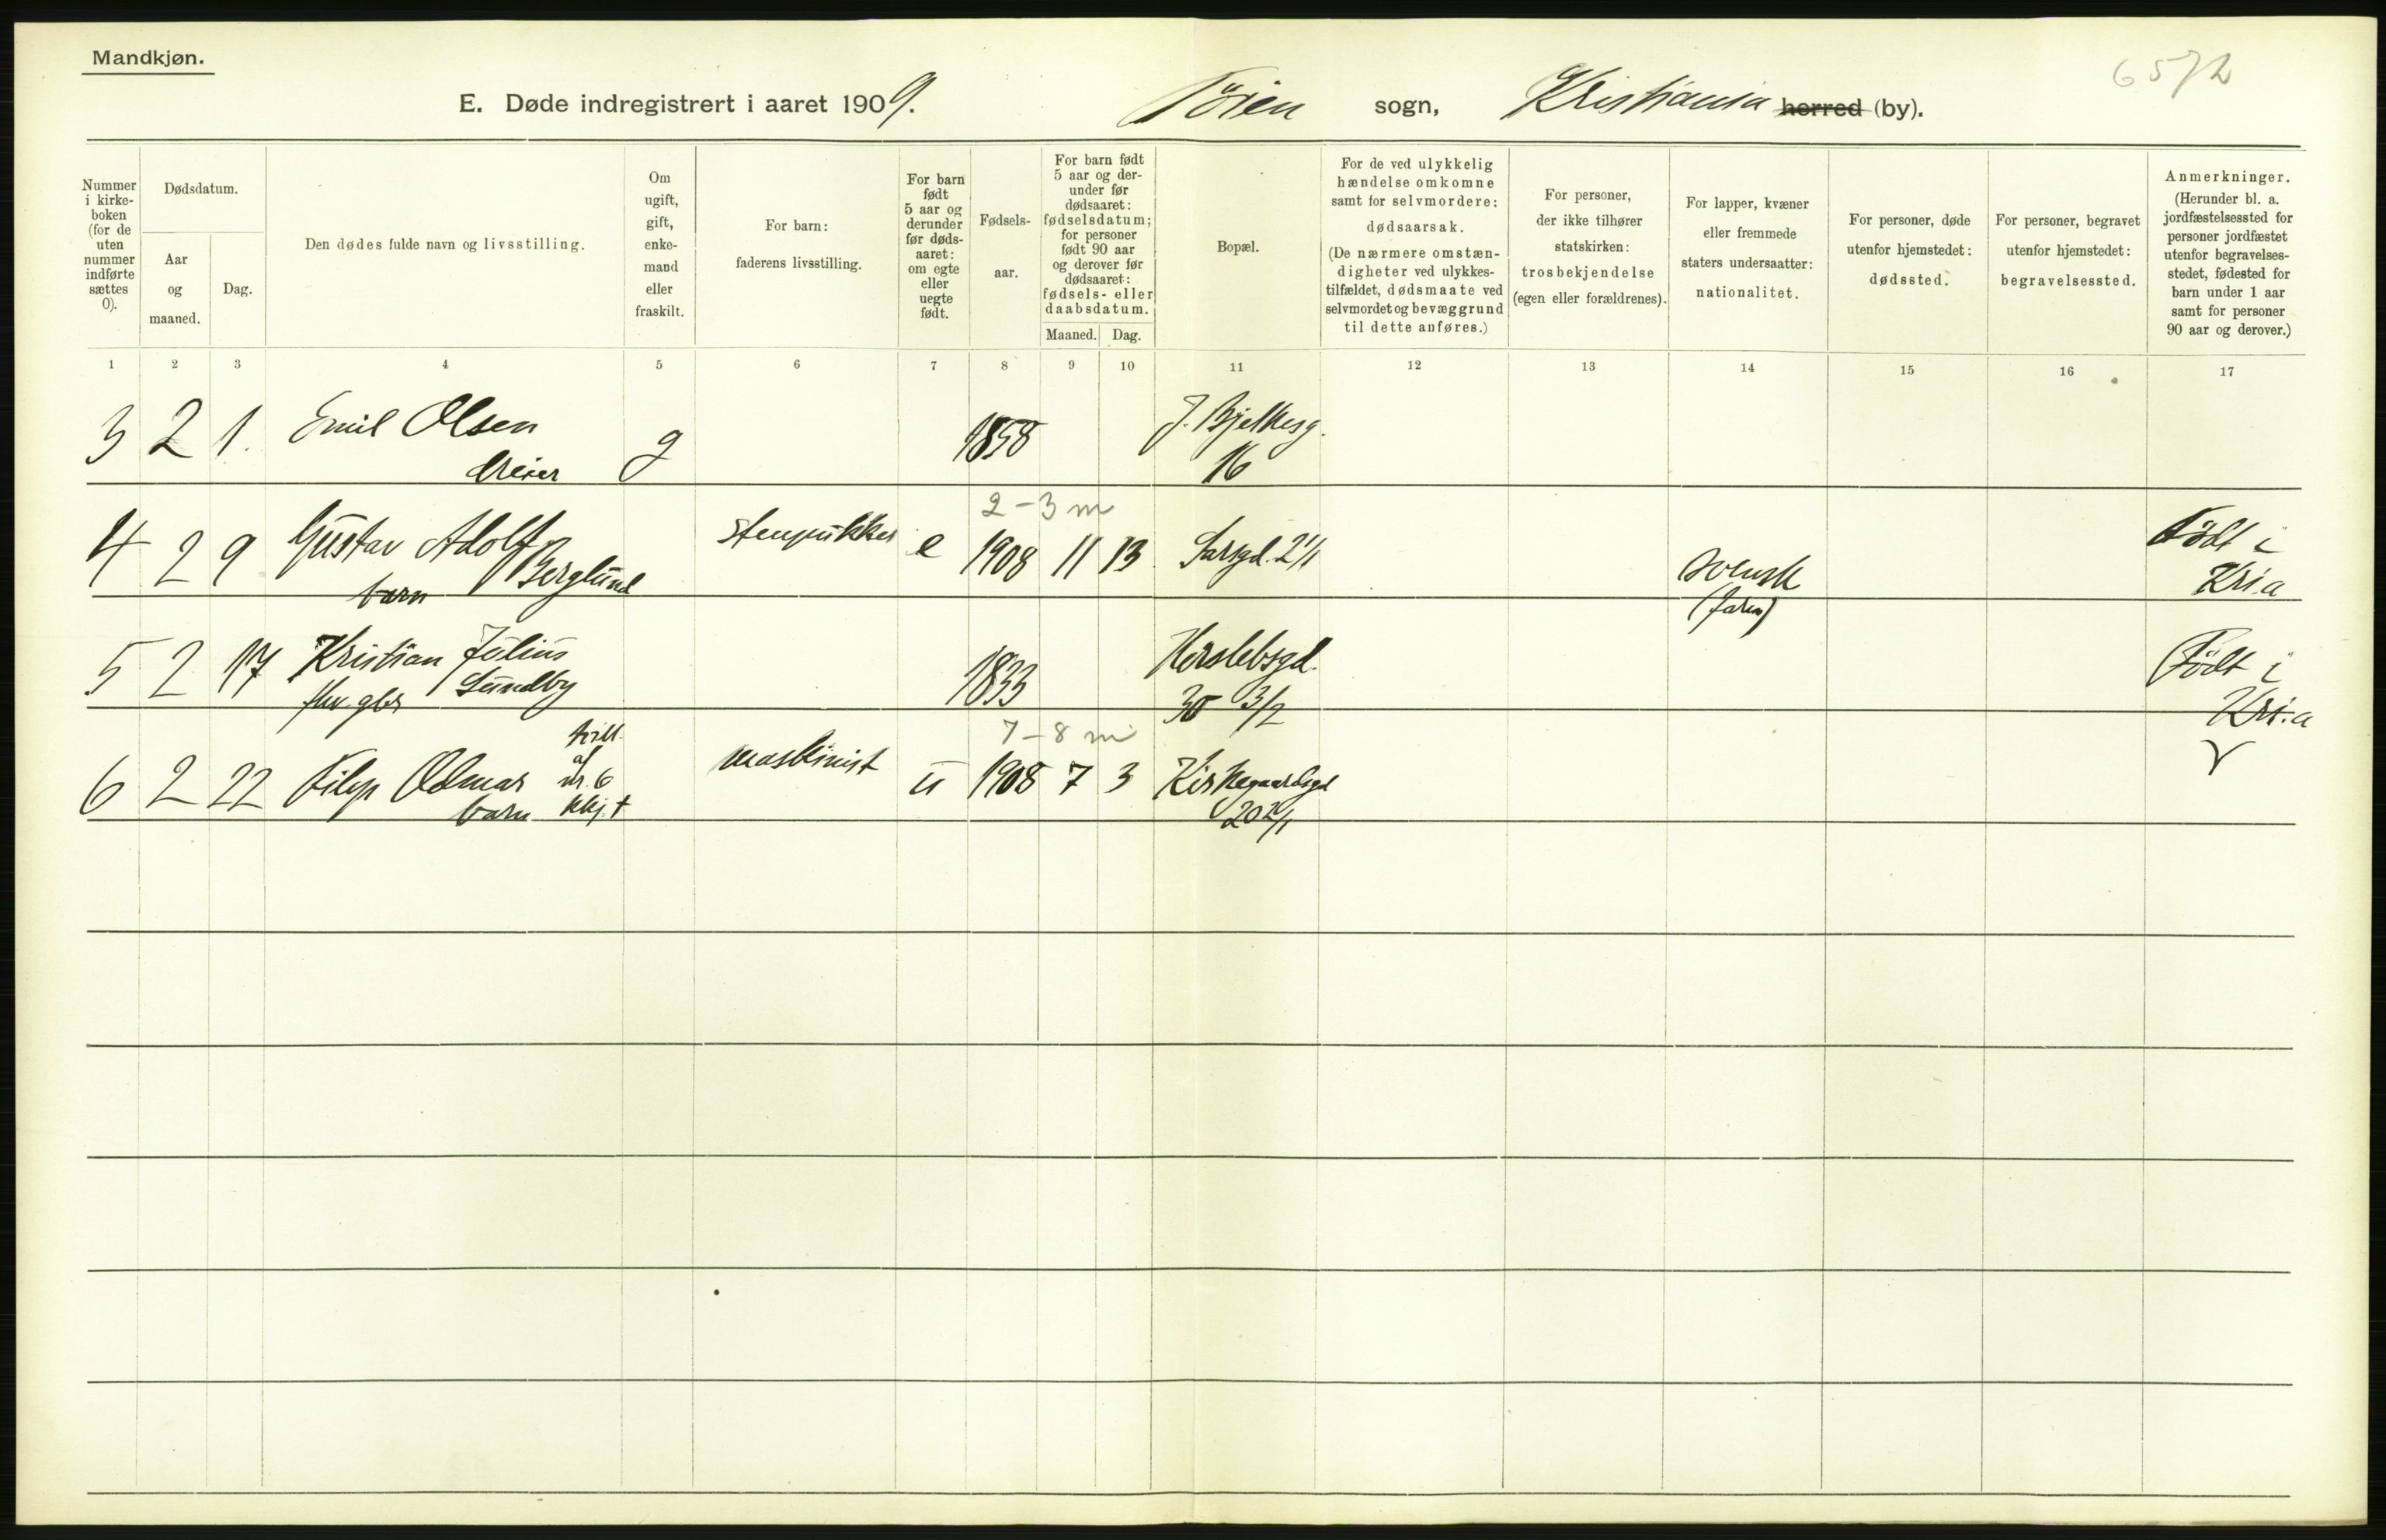 Mandkjøn.
6572
E. Døde indregistrert i aaret 1909. Töien sogn, Kristiania herred (by).
Nummer i kirke-boken (for de uten nummer indførte sættes 0).
Dødsdatum.
Aar og maaned.
Dag.
Den dødes fulde navn og livsstilling.
Om ugift, gift, enke-mand eller fraskilt.
For barn: faderens livsstilling.
For barn født 5 aar og derunder før døds-aaret: om egte eller uegte født.
Fødsels-aar.
For barn født 5 aar og der-under før dødsaaret: fødselsdatum; for personer født 90 aar og derover før dødsaaret: fødsels- eller daabsdatum.
Maaned. Dag.
Bopæl.
For de ved ulykkelig hændelse omkomne samt for selvmordere: dødsaarsak. (De nærmere omstæn-digheter ved ulykkes-tilfældet, dødsmaate ved selvmordet og bevæggrund til dette anføres.)
For personer, der ikke tilhører statskirken: trosbekjendelse (egen eller forældrenes).
For lapper, kvæner eller fremmede staters undersaatter: nationalitet.
For personer, døde utenfor hjemstedet: dødssted.
For personer, begravet utenfor hjemstedet: begravelsessted.
Anmerkninger. (Herunder bl. a. jordfæstelsessted for personer jordfæstet utenfor begravelses-stedet, fødested for barn under 1 aar samt for personer 90 aar og derover.)
1 2 3 4 5 6 7 8 9 10 11 12 13 14 15 16 17
3 2 1. Emil Olsen g 1858 J. Bjelkesg.
dreier 16
2-3 m
4 2 9 Gustav Adolf stenpukker e 1908 11 13 Sarsgd. 2 1/1 svensk Födt i
Berglund (faren) Kri.a
barn
5 2 17 Kristian Julius 1833 Herslebsgd. Födt i
fhv. gbr Lundby 30 3/2 Kri.a
7-8 m
6 2 22 Filip Odmar maskinist u 1908 7 3 Kirkegaardsgd
barn 20 2/1
tvill.
af
nr. 6
kkj. +